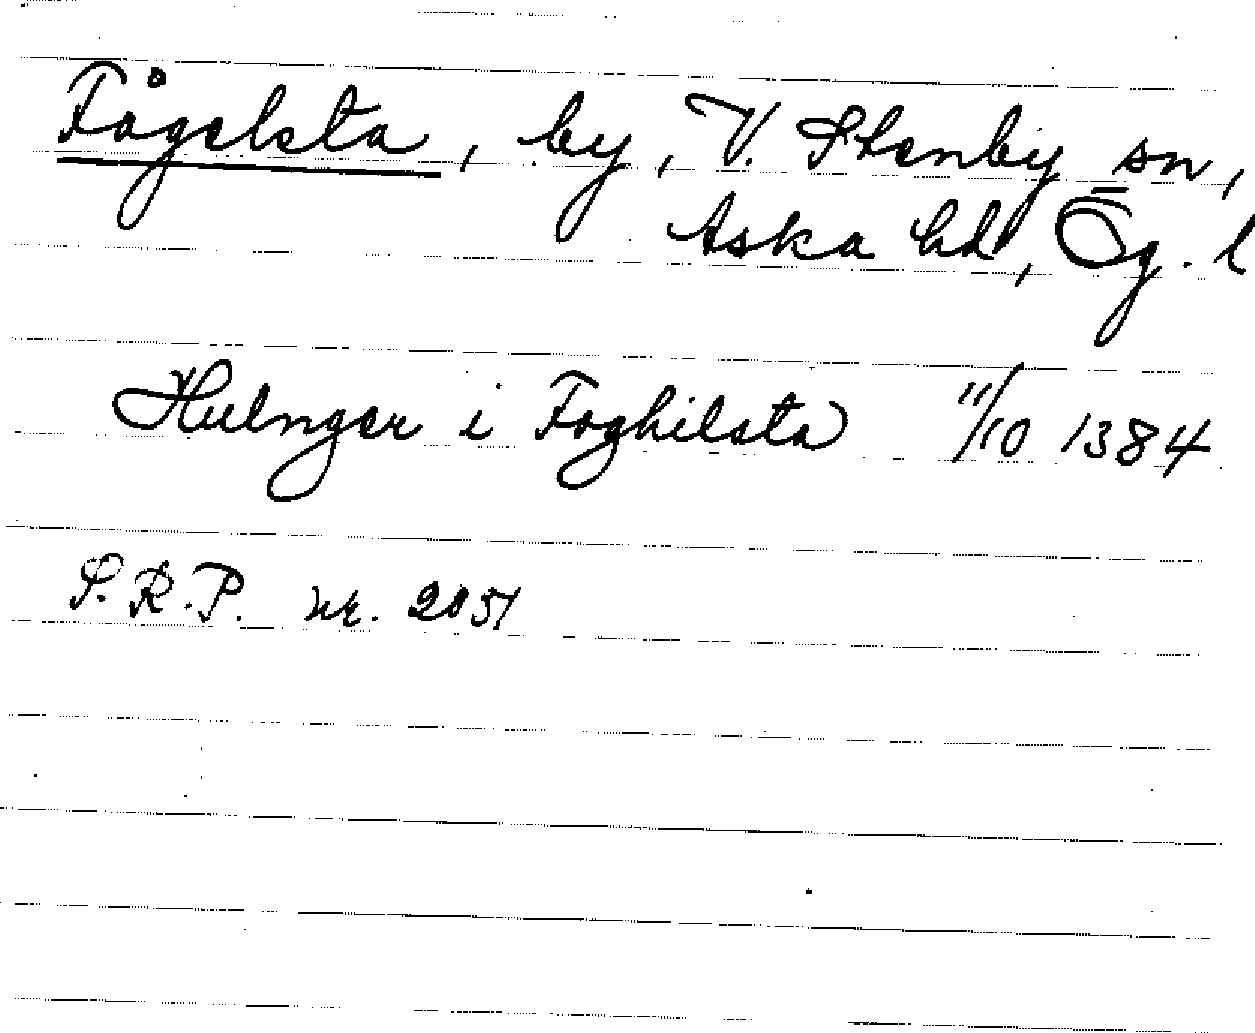 Fågelsta, by, V. Stenby sn,
Aska hd, Ög. l
Hulnger i Foghilsta 11/10 1384
S.R.P. nr. 2051